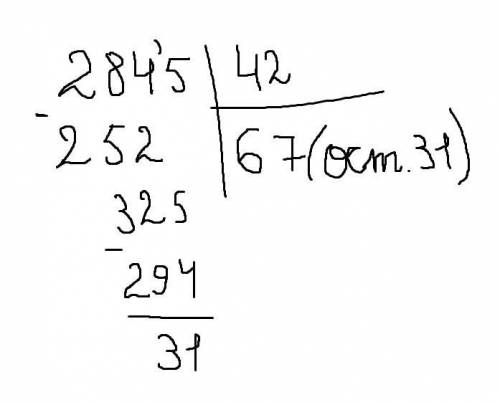 284'5 | 42
- 252 | 67 (ост. 31)
325
- 294
31